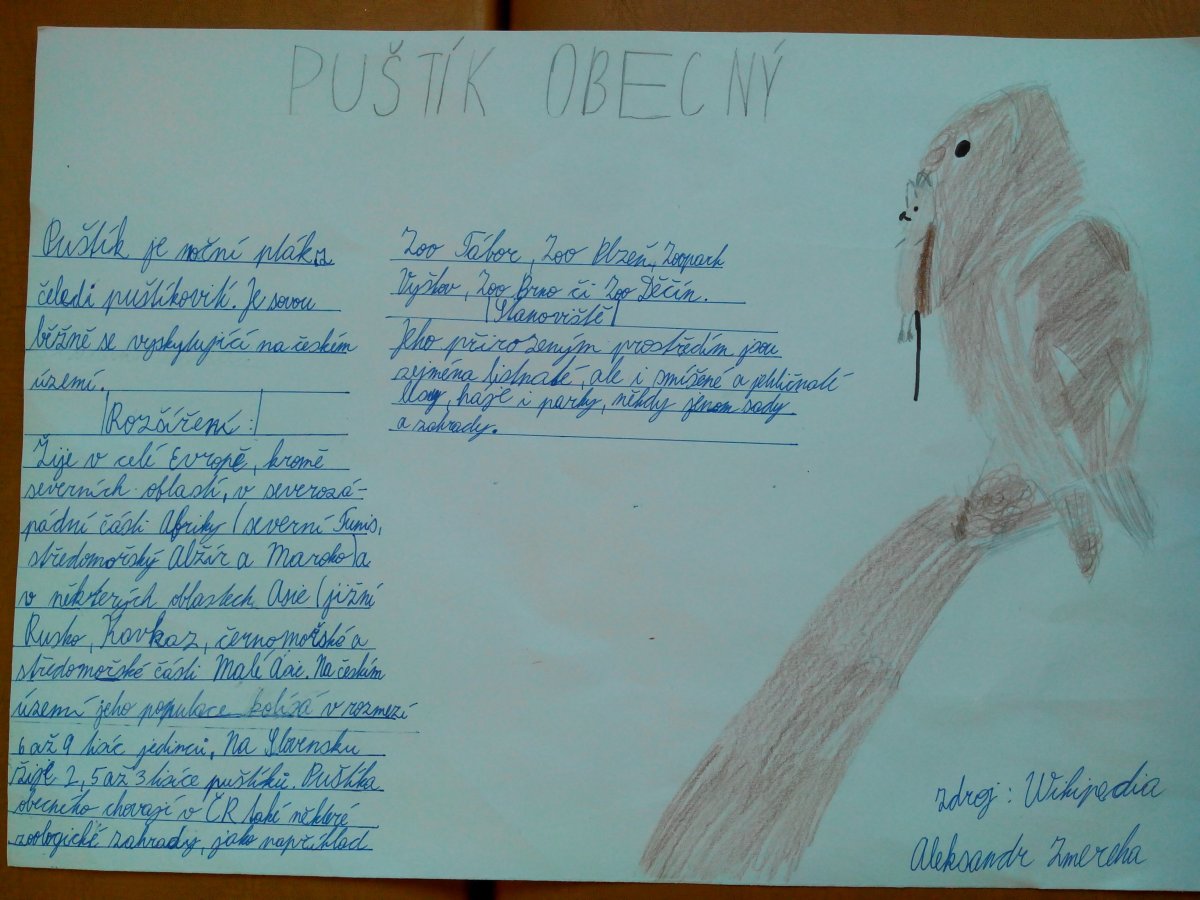 PUŠTÍK OBECNÝ
Puštík je noční pták z
čeledi puštíkovití. Je sovou
běžně se vyskytující na českém
území.
Rozšíření:
Žije v celé Evropě, kromě
severních oblastí, v severozá-
pádní části Afriky (severní Tunis,
středomořský Alžír a Maroko) a
v některých oblastech Asie (jižní
Rusko, Kavkaz, černomořská a
středomořské části Malé Asie. Na českém
území jeho populace kolísá v rozmezí
6 až 9 tisíc jedinců, Na Slovensku
žije 2,5 až 3 tisíce puštíků. Puštíka
obecného chovají v ČR také některé
zoologické zahrady, jako například
Zoo Tábor, Zoo Plzeň, Zoopark
Vyškov, Zoo Brno či Zoo Děčín.
Stanoviště
Jeho přirozeným prostředím jsou
zejména listnaté, ale i smíšené a jehličnaté
lesy, háje i parky, někdy jenom sady
a zahrady.
zdroj: Wikipedia
Aleksandr Zmereha